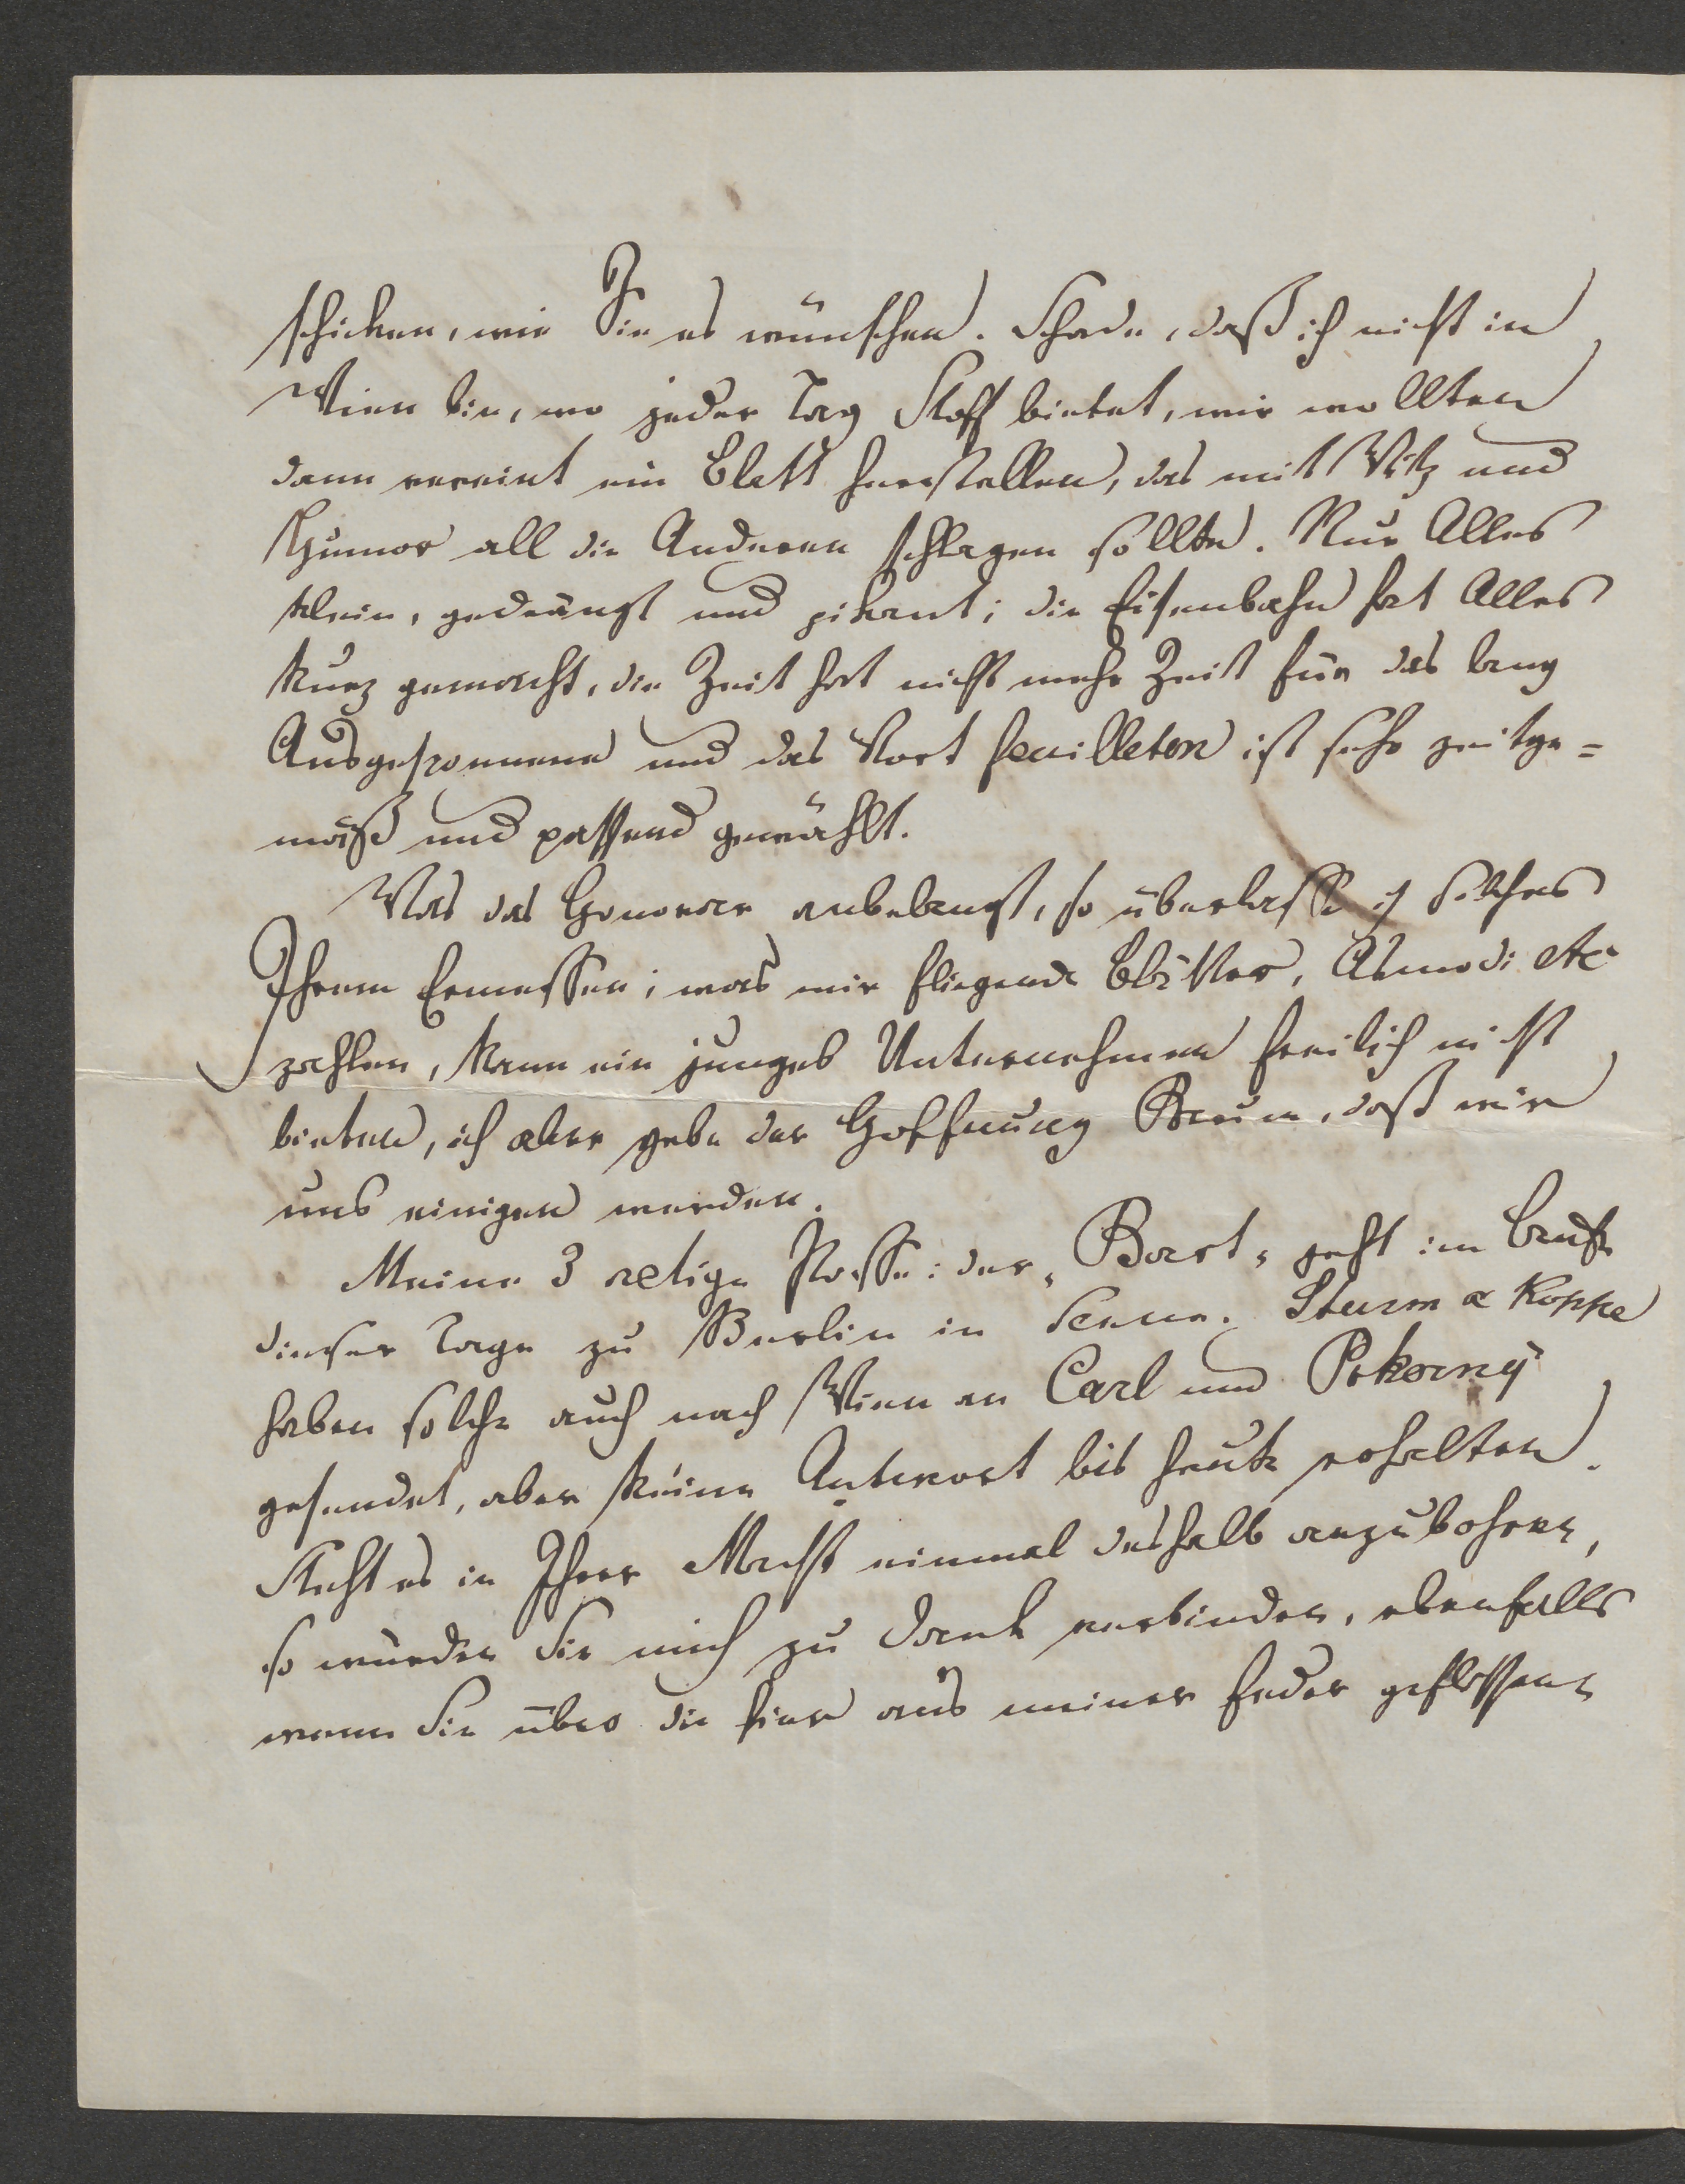 schicken, wie Sie es wünschen. Schade, daß ich nicht in
Wien bin, wo jeder Tag Stoff bietet, wir wollten
dann vereint ein Blatt herstellen, das mit Witz und
Humor all die Anderen schlagen sollte. Nur Alles
klein, gedrängt und pikant; die Eisenbahn hat Alles
kurz gemacht, die Zeit hat nicht mehr Zeit für das lang
Ausgesponnene und das Wort feuilleton ist sehr zeitge=
mäß und passend gewählt.
Was das Honorar anbelangt, so überlasse ich solches
Ihrem Ermessen; was mir fliegende Blätter, Asmodi etc
zahlen, kann ein junges Unternehmen freilich nicht
bieten, ich aber gebe der Hoffnung Raum, daß wir
uns einigen werden.
Meine 3 actige Posse: der „Bart„ geht im Laufe
dieser Tage zu Berlin in Scene. Sturm & Koppe
haben solche auch nach Wien an Carl und Pokorny
gesendet, aber keine Antwort bis heute erhalten.
Steht es in Ihrer Macht einmal deshalb anzubohren,
so würden Sie mich zu Dank verbinden, ebenfalls
wenn Sie über die hier aus meiner Feder geflossene